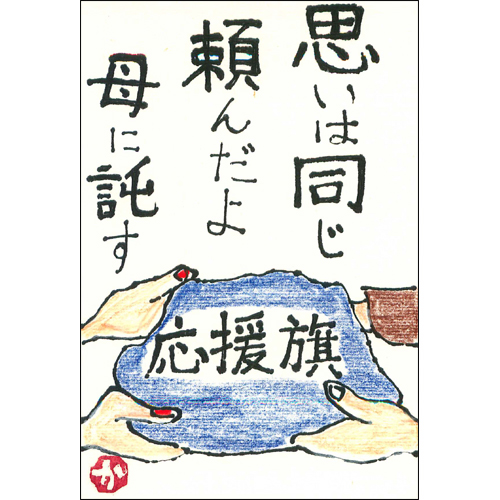 思いは同じ
頼んだよ
母に託す
応援旗
か